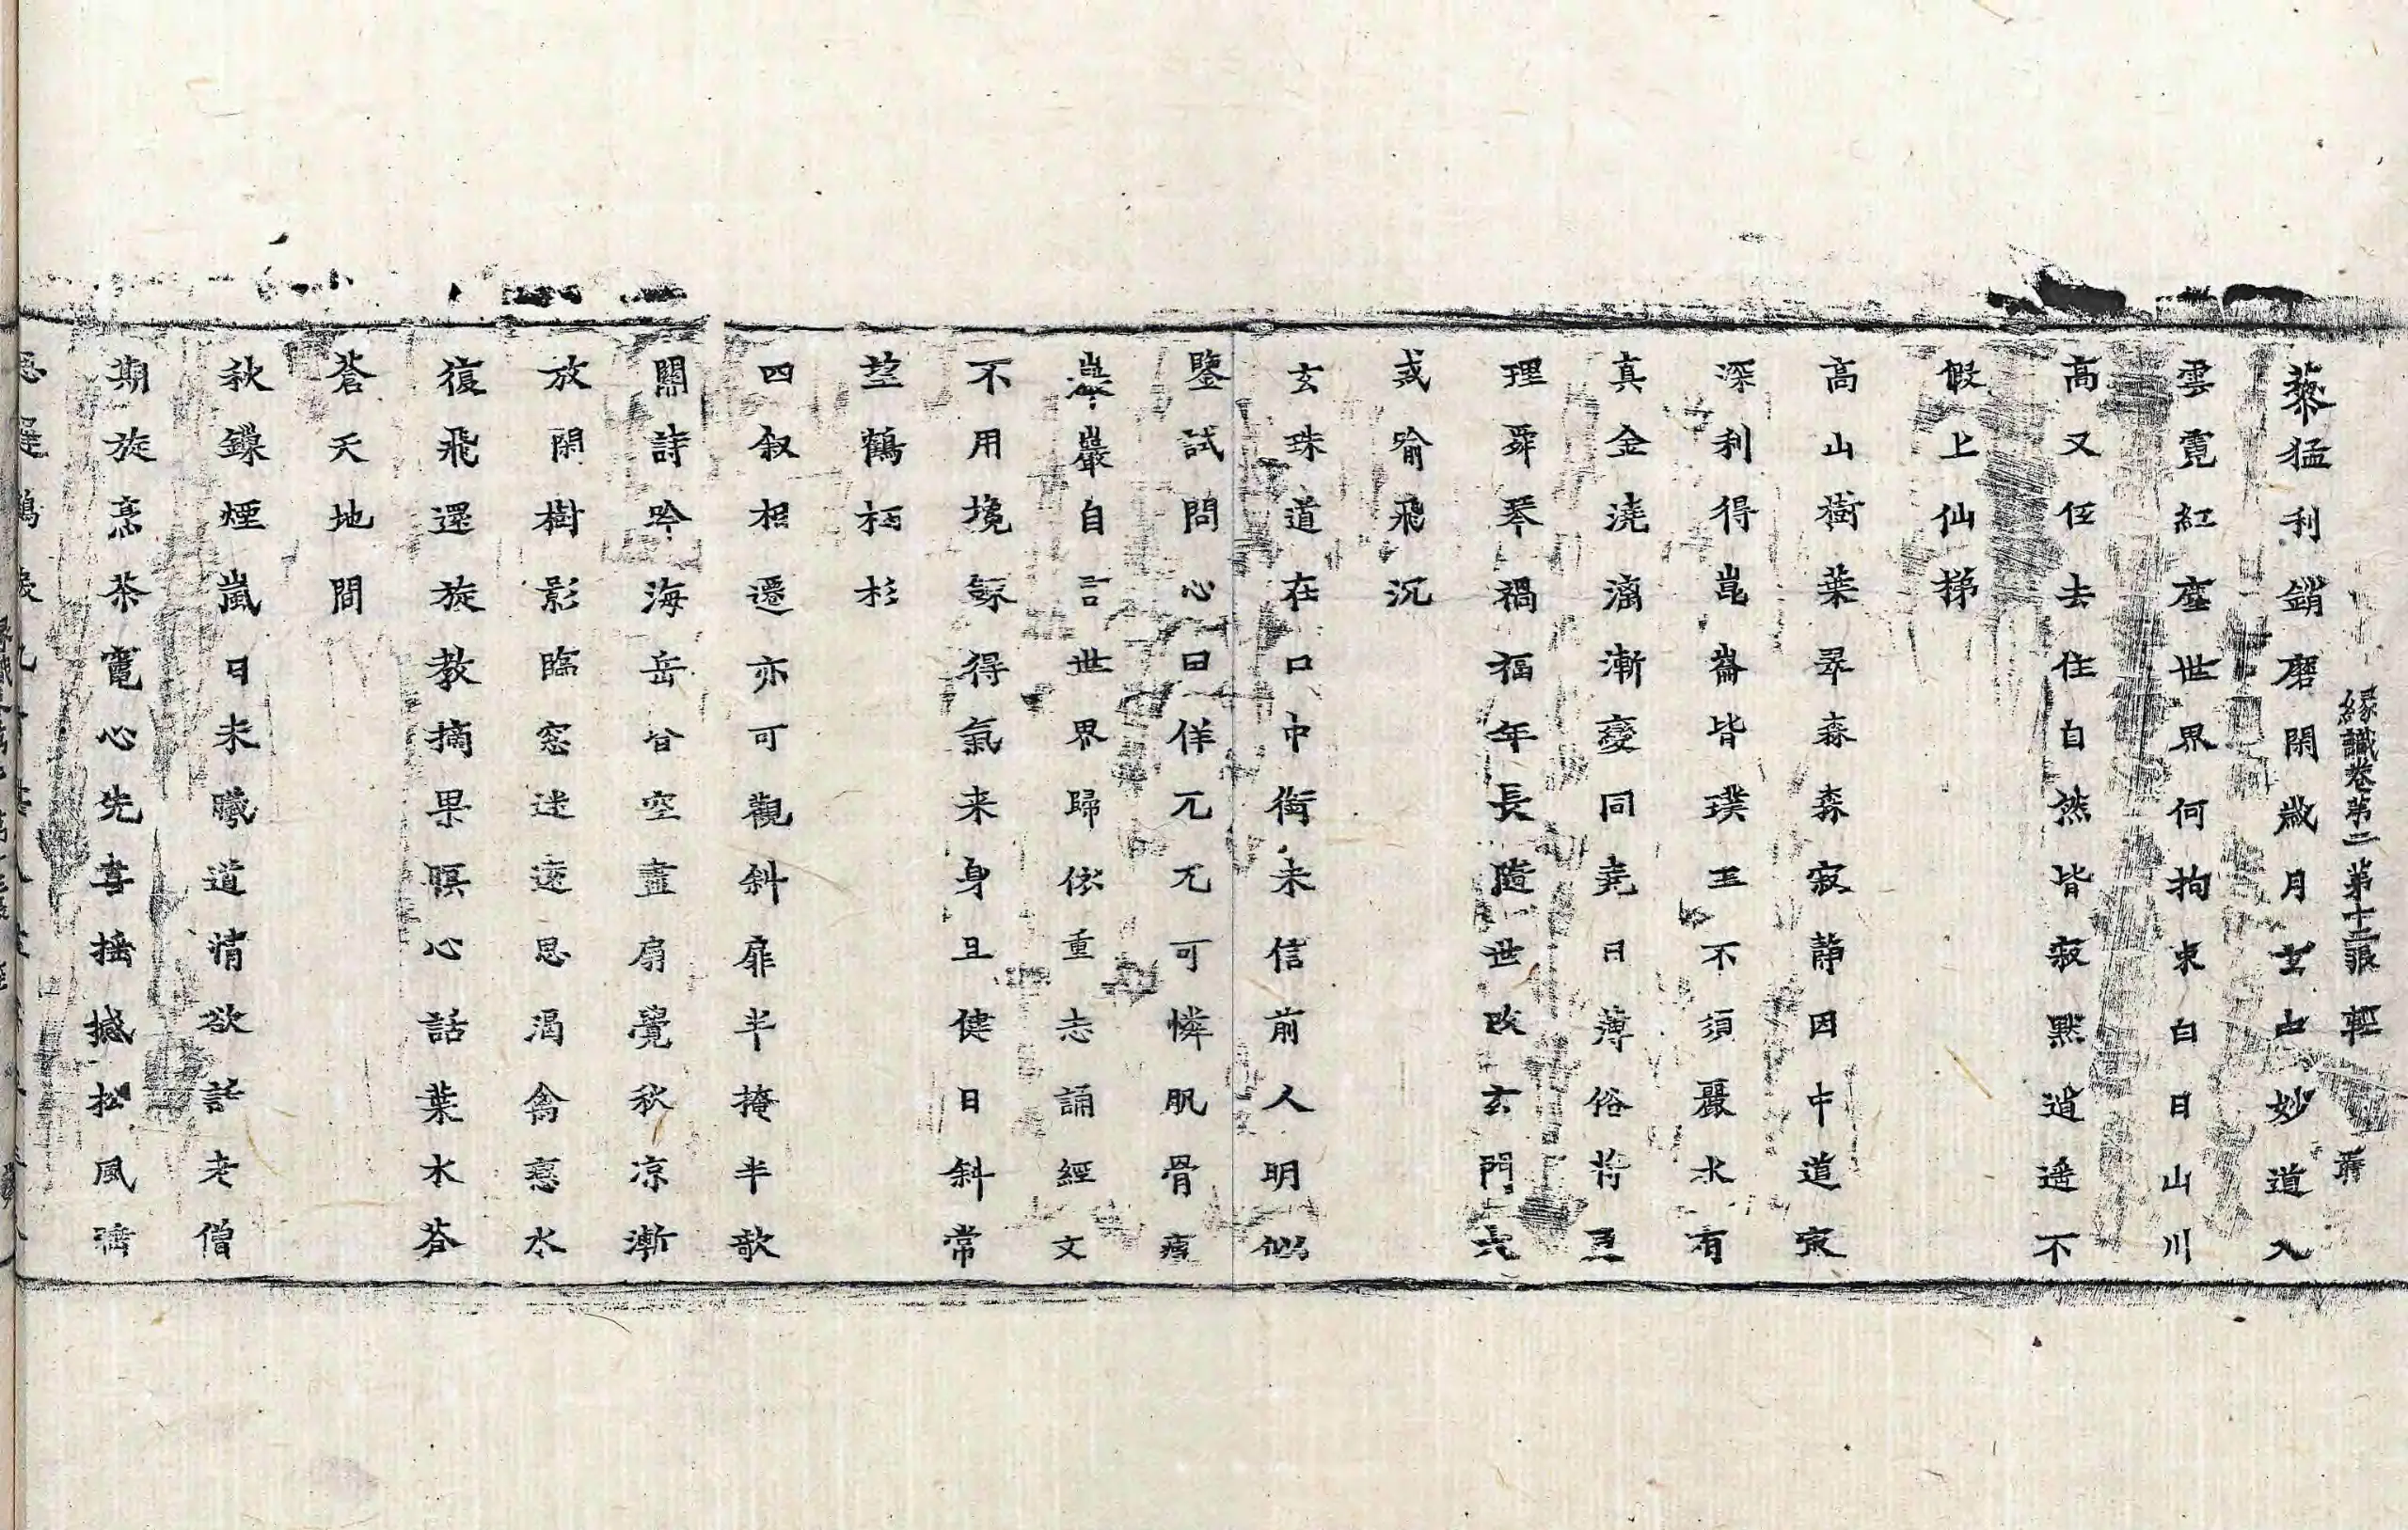 緣識卷第二 第十二張 輕
藜猛利銷磨閑歲月玄中妙道入
雲霓紅塵世界何拘束白日山川
高又低去住自然皆寂默逍遥不
假上仙梯
高山樹葉翠森森寂靜因中道㝎
深利得崑崙皆璞玉不須嚴水有
真金澆漓漸變同堯日薄俗将
理舜琴禍福年長隨世改玄門
或喻飛沉
玄珠道在口中銜未信前人明似
鑒試問心曰佯兀兀可憐肌骨瘦
巖巖自言世界歸依重志誦經文
不用攙霢得氣来身且健日斜常
望鶴栖杉
四叙相遷亦可觀斜扉半掩半歌
闌詩吟海岳皆空盡扇覺秋凉漸
放閑樹影臨窓迷遠思渴禽戀水
復飛還旋教摘果瞑心話葉水荅
蒼天地間
秋鏁煙嵐日未曦道情欲話老僧
期旋燕茶竈心先喜摇撼松風